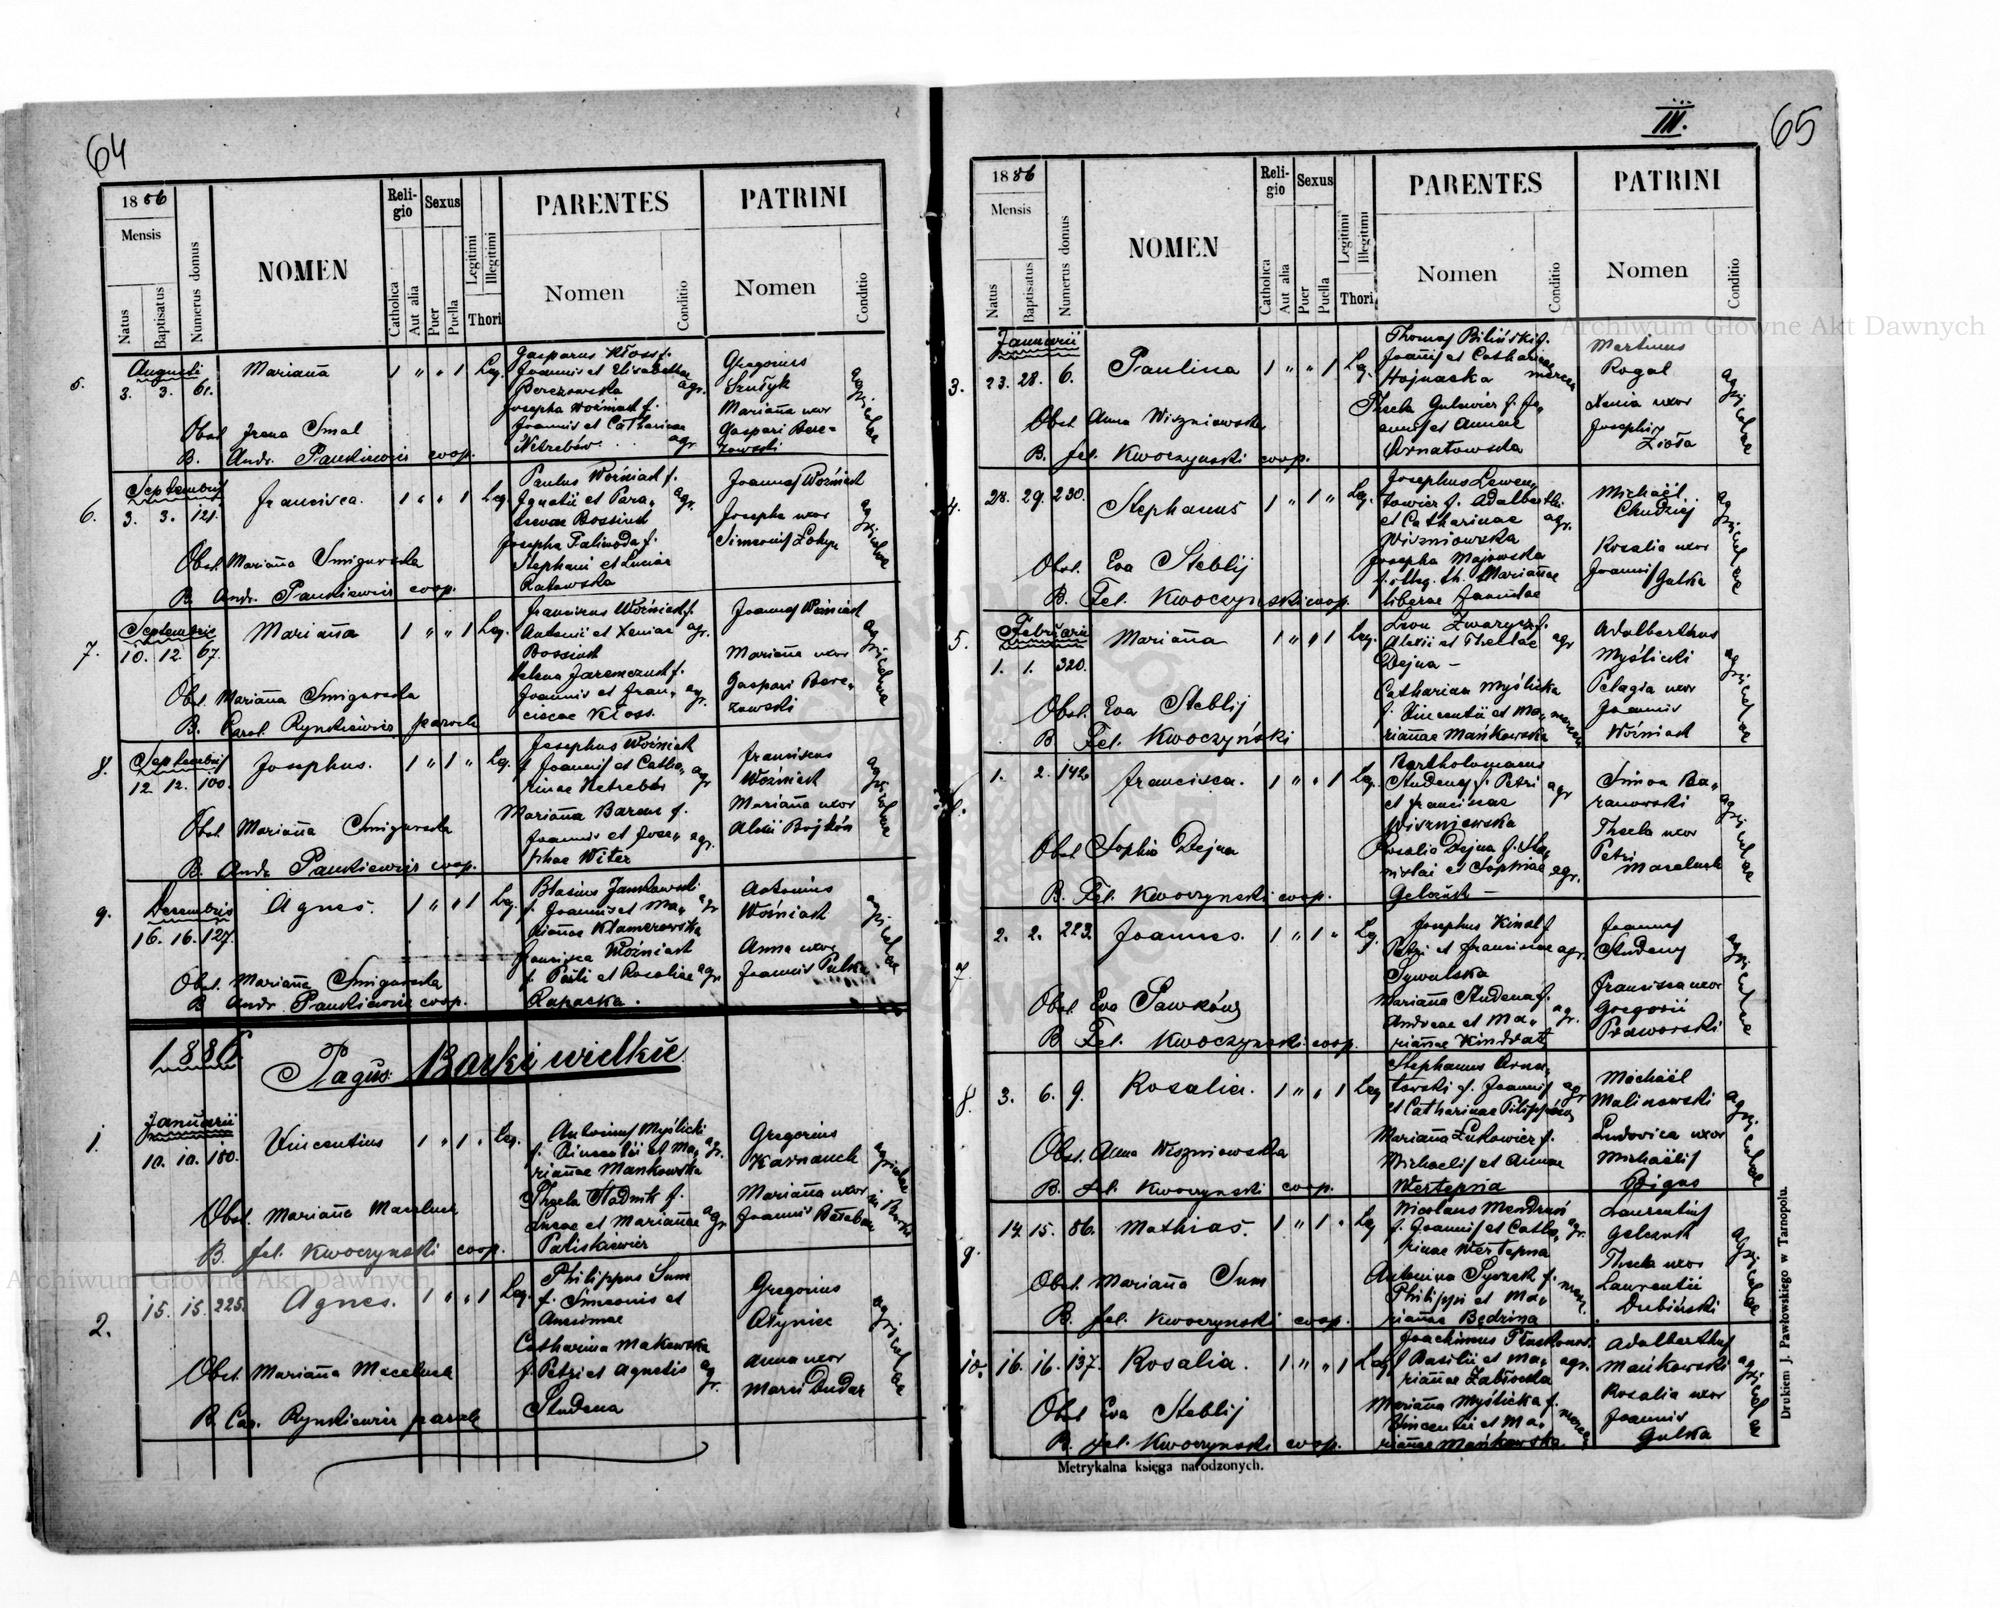 64
1886
Mensis
Natus
Baptisatus
Numerus domus
NOMEN
Religio
Catholica
Aut alia
Sexus
Puer
Puella
Legitimi
Illegitimi
Thori
PARENTES
Nomen
Conditio
PATRINI
Nomen
Conditio
5.
Augusti
3. 3. 61.
Mariaña
1 " " 1 Leg.
Gasparus Kłoss f.
Joannis et Elisabethae
Berezowska agr.
Josepha Woźniak f.
Joannis et Catharinae
Netrebów agr.
Gregorius
Mariaña uxor
Gaspari Bere=
zowski
agricolae
Obst. Irena Smal
B. Andr. Pankiewicz coop.
6.
Septembris
3. 3. 121.
Francisca.
1 " " 1 Leg.
Paulus Woźniak f.
Ignatii et Para" agr.
scevae Bossiuk
Josepha Paliwoda f.
Stephani et Luciae
Ratowska
Joannes Woźniak
Josepha uxor
Simeonis
agricolae
Obst. Mariaña Smigurska
B. Andr. Pankiewicz coop.
7.
Septembris
10. 12. 67.
Mariaña
1 " " 1 Leg.
Franciscus Woźniak f.
Antonii et Xeniae agr.
Bossiuk
Helena Jaremczuk f.
Joannis et Fran" agr.
ciscae Kłoss.
Joannes Woźniak
Mariaña uxor
Gaspari Bere"
zowski
agricolae
Obst. Mariaña Smigurska
B. Carol. Rynkiewicz paroch
8.
Septembris
12. 12. 100.
Josephus.
1 " 1 " Leg.
Josephus Woźniak
f. Joannis et Catha" agr
rinae Netrebów
Mariaña Baran f.
Joannis et Jose" agr.
phae Witer
Franciscus
Woźniak
Mariaña uxor
Alexii Bojków
agricolae
Obst. Mariaña Smigurska
B. Andr. Pankiewicz coop.
9.
Decembris
16. 16. 127.
Agnes.
1 " " 1 Leg.
Blasius Jankowski
f. Joannis et Ma" agr
riañae Klamerowska
Francisca Woźniak
f. Pauli et Rosaliae agr.
Rapacka.
Antonius
Woźniak
Anna uxor
Joannis Pulka
agricolae
Obst. Mariaña Smigurska
B. Andr. Pankiewicz coop.
1886. Pagus: Borki wielkie
1
Januarii
10. 10. 180.
Vincentius
1 " 1 " Leg.
Antonius Myślicki
f. Vincentii et Ma" agr.
riañae Mankowska
Thecla Stadnik f.
Lucae et Mariañae agr
Paliskiewicz
Gregorius
Mariaña uxor
Joannis
agricolae in Borki
Obst. Mariaña Maceluch
B. Fel. Kwoczynski coop.
2.
15. 15. 225.
Agnes.
1 " " 1 Leg.
Philippus Sum
f. Simeonis et
Anisimae
Catharina Makowska
f. Petri et Agnetis agr.
Studena
Gregorius
Olyniec
Anna uxor
Marci Dudar
agricolae
Obst. Mariaña Maceluch
B. Car. Rynkiewicz paroch
III.
65
1886
Mensis
Natus
Baptisatus
Numerus domus
NOMEN
Religio
Catholica
Aut alia
Sexus
Puer
Puella
Legitimi
Illegitimi
Thori
PARENTES
Nomen
Conditio
PATRINI
Nomen
Conditio
3.
Januarii
23. 28. 6.
Paulina
1 " " 1 Leg.
Thomas Biliński f.
Joañis et Catharinae
Hojnacka
Thecla Gulewicz f. Jo"
annis et Annae
Ornatowska
Martinus
Rogal
Xenia uxor
Josephi
Zioła
agricolae
Obst. Anna Wiszniowska
B. Fel. Kwoczynski coop.
4.
28. 29. 230.
Stephanus
1 " 1 " Leg.
Josephus Lewen"
towicz f. Adalberti
et Catharinae agr.
Wiszniowska
Josepha Majowska
f. illeg. th. Mariañae
liberae
Michaël
Chudziej
Rosalia uxor
Joannis
Gulka
agricolae
Obst. Eva Steblij
B. Fel. Kwoczynski coop.
5.
Februarii
1. 1. 320.
Mariaña
1 " " 1 Leg.
Leon Zwarycz f.
Alexii et Theclae agr
Dejna –
Catharina Myślicka
f. Vincentii et Ma"
riañae Mańkowska
Adalbertus
Myślicki
Pelagia uxor
Joannis
Woźniak
agricolae
Obst. Eva Steblij
B. Fel. Kwoczyński
6.
1. 2. 142.
Francisca.
1 " " 1 Leg
Bartholomaeus
Studeny f. Petri agr
et Franciscae
Wiszniewska
Rosalia Dejna f. Sta"
nislai et Sophiae agr.
Gelczuk –
Simon Ba"
ranowski
Thecla uxor
Petri
Maceluch
agricolae
Obst. Sophia Dejna
B. Fel. Kwoczynski coop.
7
2. 2. 223.
Joannes.
1 " 1 " Leg.
Josephus Kinal f
Petri et Franciscae agr.
Sywulska
Mariaña Studena f.
Andreae et Ma" agr.
riañae Kindrat
Joannes
Studeny
Francisca uxor
Gregorii
Praworski
agricolae
Obst. Eva Sawków
B. Fel. Kwoczynski coop.
8.
3. 6. 9.
Rosalia.
1 " " 1 Leg
Stephanus Orna"
towski f. Joannis agr
et Catharinae Pilippów
Mariaña Łukowicz f.
Michaelis et Annae
Wertepna
Michaël
Malinowski
Ludovica uxor
Michaëlis
Gigus
agricolae
Obst. Anna Wiszniowska
B. Fel. Kwoczynski coop.
9.
14. 15. 86.
Mathias.
1 " 1 " Leg
Nicolaus Mendruń
f. Joannis et Catha" agr.
rinae Wertepna
Antonina Syczek f.
Philippi et Ma"
riañae Bedrina
Laurentius
Gelczuk
Thecla uxor
Laurentii
Dubiński
agricolae
Obst. Mariaña Sum
B. Fel. Kwoczynski coop.
10.
16. 16. 137.
Rosalia.
1 " " 1 Leg
f. Basilii et Ma" agr.
riañae Zabłocka
Mariaña Myślicka f.
Vincentii et Ma"
riañae Mańkowska
Adalbertus
Mańkowski
Rosalia uxor
Joannis
Gulka
agricolae
Obst. Eva Steblij
B. Fel. Kwoczynski coop.
Metrykalna księga narodzonych.
Drukiem J. Pawłowskiego w Tarnopolu.
Archiwum Główne Akt Dawnych
Archiwum Główne Akt Dawnych